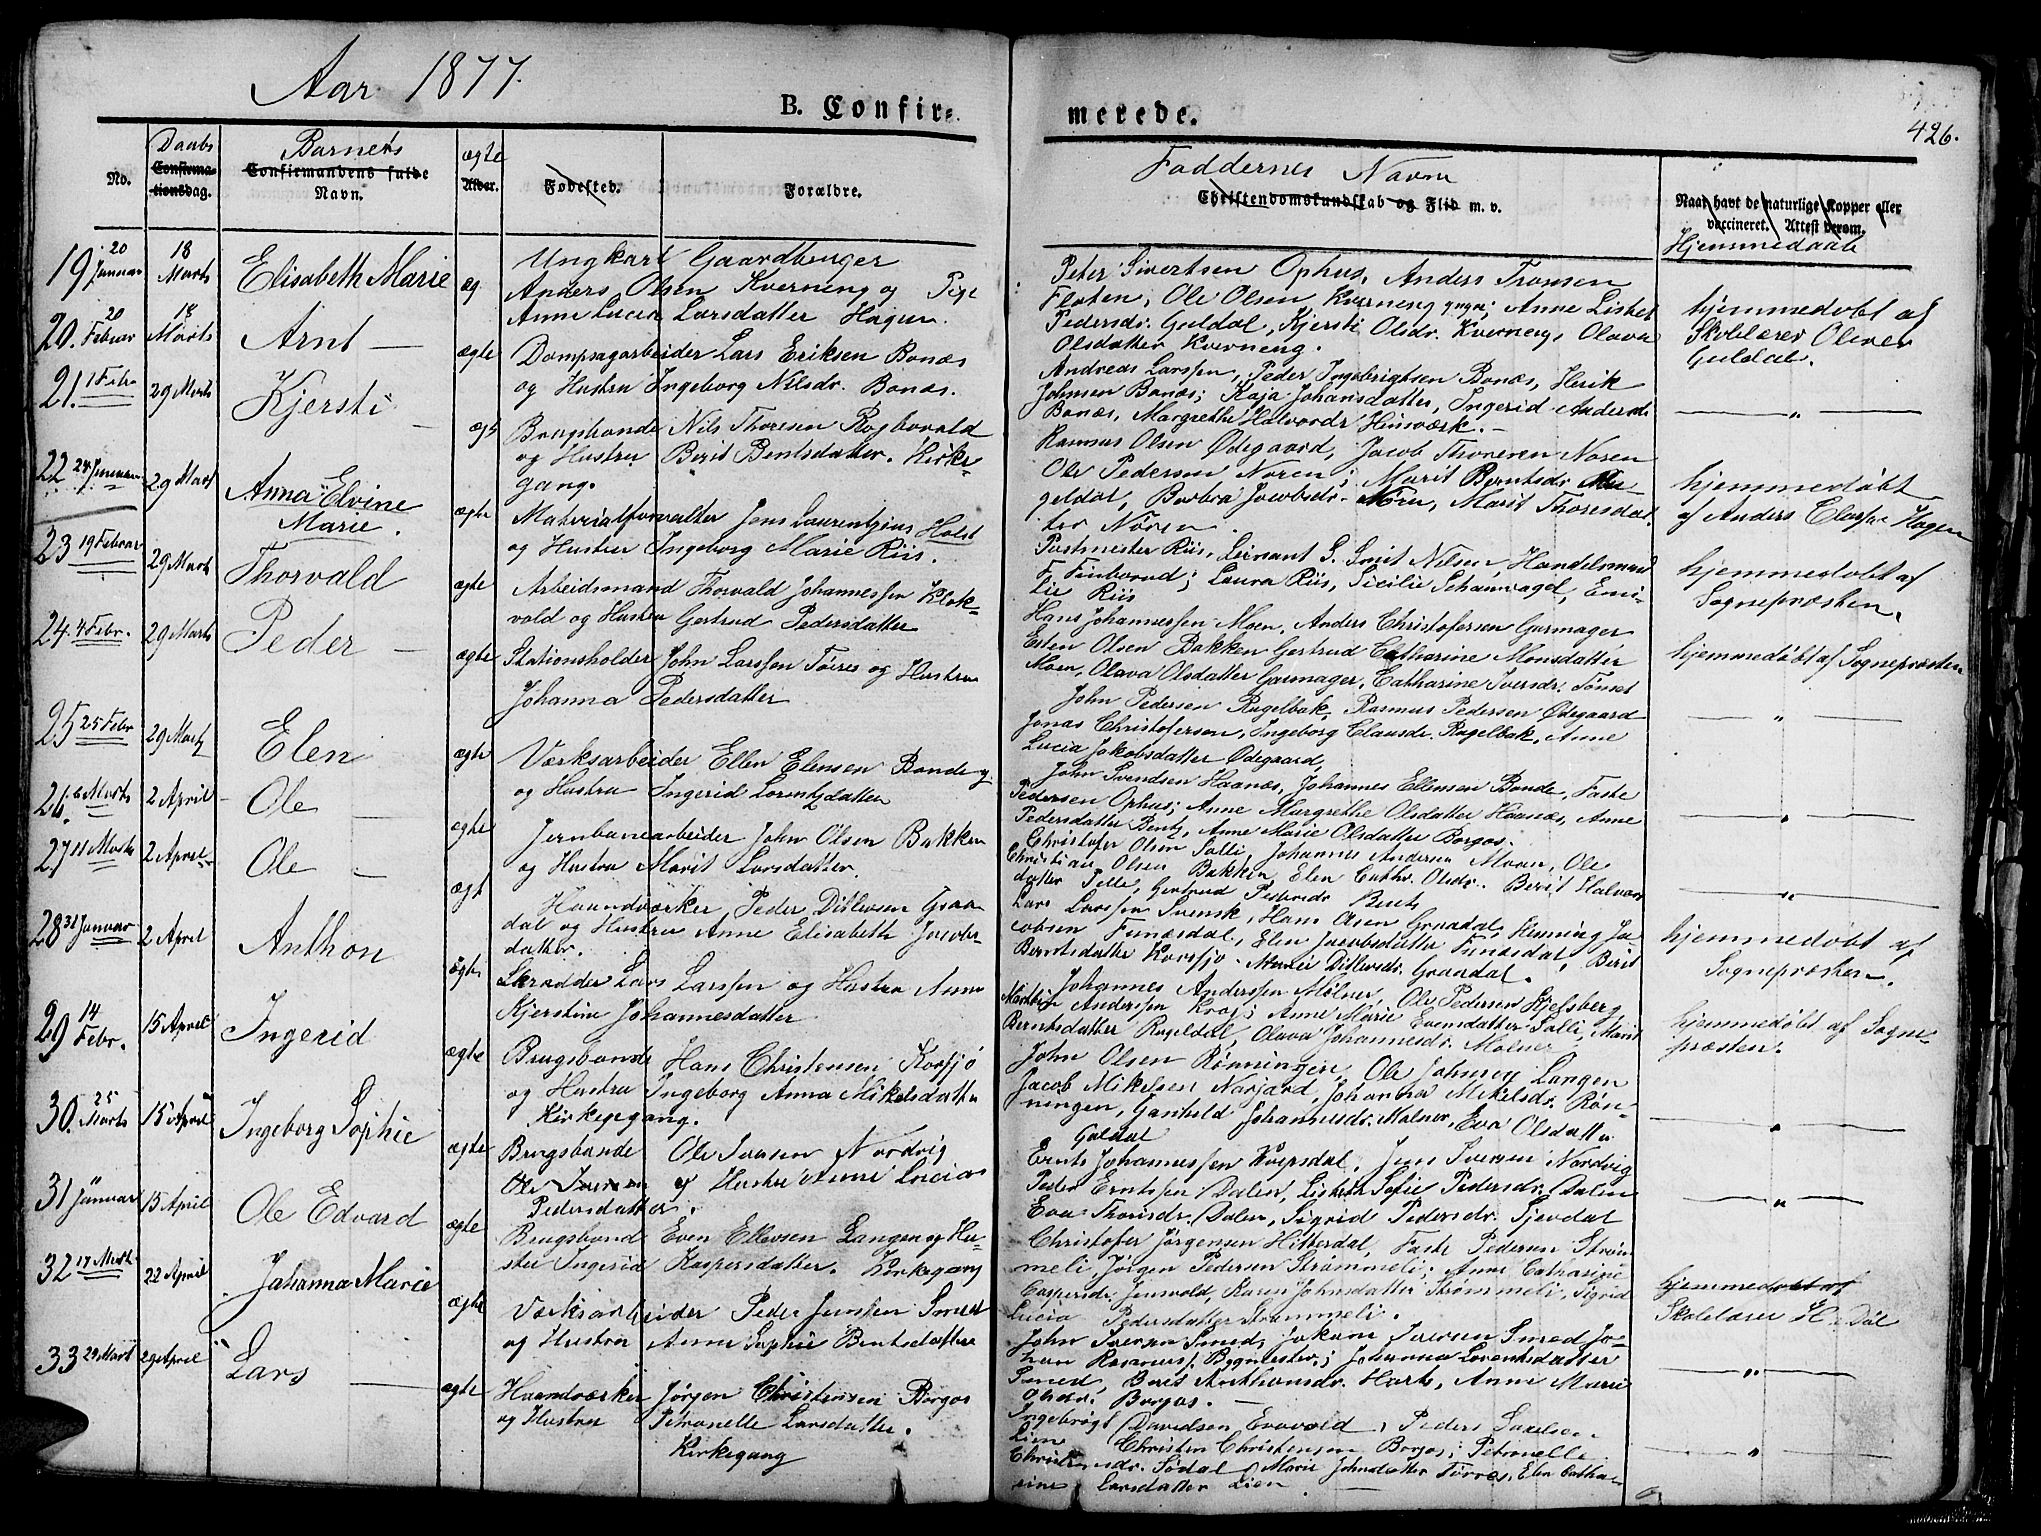 Aar 1877.
B. Confir=
merede.
426.
No.
Daabs
Confirma=
tionsdag.
Barnets
Confirmandens fulde
Navn.
ægte
Alder.
Fødested.
Forældre.
Faddernes Navne
Christendomskundskab og Flid m. v.
Naar havt de naturlige Kopper eller
vaccineret. Attest derom.
Hjemmedaab
19 20 Januar 18 Marts Elisabeth Marie æg
Ungkarl Gaardbruger
Anders Olsen Kverneng og Pige
Anne Lucia Larsdatter Hagen.
Peter Sivertsen Ophus, Anders Tronsen
Floten, Ole Olsen Kverneng yngre; Anne Lisbet
Pedersdr. Guldal, Kjersti Olsdr. Kverneng, Olava
Olsdatter Kverneng.
hjemmedøbt af
Skolelærer Oliver
Guldal.
20. 20 Februar 18 Marts Arnt — ægte
Dampsagarbeider Lars Eriksen Bonæs
og Hustru Ingeborg Nilsdr. Bonæs.
Andreas Larssen, Peder Ingebrigtsen Bonæs, Henrik
Johnsen Bonæs; Kaja Johansdatter, Ingerid Andersdr.
Bonæs, Margrethe Halvordr Hinværk. —
— " —
21. 1 Febr 29 Marts Kjersti —
Brugsbonde Nils Thoresen Rogbovald
og Hustru Berit Bentsdatter. Kirke-
gang.
Rasmus Olsen Ødegaard, Jacob Thoresen Noren
Ole Pedersen Noren; Marit Berntsdr
geldal, Barbra Jacobsdr. Nören, Marit Thoresdat-
ter Nören.
hjemmedøbt
af Anders Hagen
22 24 Januar 29 Mart Anna Elvine
Marie. ægte
Materialforvalter Jens Laurentzius Holst
og Hustru Ingeborg Marie Riis.
Postmester Riis, Leinant S. Smit Nilsen, Handelsmand
F. Finborud; Laura Riis, Sicilie Schanvagel, Emi-
lie Riis
hjemmedøbt af
Sognepræsten.
23 19 Februar 29 Marts Thorvald ægte
Arbeidsmand Thorvald Johannessen Klok-
vold og Hustru Gertrud Pedersdatter
Hans Johannessen Moen, Anders Christofersen Garmager
Esten Olsen Bakken Gertrud Catharine Monsdatter
Moen, Olava Olsdatter Garmager, Catharine Iversdr. Tønset
hjemmedøbt af Sognepræsten
24. 4 Febr. 29 Marts Peder — ægte
Stationsholder John Larssen Tørres og Hustru
Johanna Pedersdatter
John Pedersen Rugelbak, Rasmus Pedersen Ødegaard
Jonas Christofersen, Ingeborg Clausdr. Rugelbak, Anne
Lucia Jakobsdatter Ødegaard,
— " —
25 25 Febr 29 Marts Elen ægte
Værksarbeider Ellen Elensen Bonde og
og Hustru Ingerid Lorentzdatter
John Svendsen Haanæs, Johannes Ellensen Bonde, Faste
Pedersen Ophus; Anne Margrethe Olsdatter Haanæs, Anne
Pedersdatter Bentz, Anne Marie Olsdatter Borgos.
— " —
26. 6 Marts 2 April Ole — ægte
Jernbanearbeider John Olsen Bakken
og Hustru Marit Larsdatter.
Christofer Olsen Salli, Johannes Andersen Moan, Ole
Christian Olsen Bakken, Elen Cathr. Olsdr. Berit Halvors
datter Pelle, Gertrud Pedersdr Bents
— " —
27. 11 Marts 2 April Ole — ægt
Haandværker Peder Ditlevsen Graa
dal og Hustru Anne Elisabeth Jacobs-
datter.
Lars Larssen Svensk, Hans Olsen Graadal, Henning Ja-
cobsen Funæsdal, Elen Jacobsdatter Funæsdal, Berit
Berntsdatter Korsfjo. Marie Ditlevsdr. Graadal.
hjemmedøbt af
Sognepræsten.
28 31 Januar 2 April Anthon ægte
Skrædder Lars Larssen og Hustru Anne
Kjerstine Johannesdatter
Johannes Anderssen Mølner, Ole Pedersen Kjelsberg
Anderssen Krog; Anne Marie Evensdatter Salli, Marit
Berntsdatter Rugeldal, Olava Johannesdr. Mølner
hjemmedøbt af Sogne-
præsten.
29 14 Febr. 15 April Ingerid ægte
Brugsbonde Hans Christensen Korsjö
og Hustru Ingeborg Anna Mikelsdatter
Kirkegang.
John Olsen Rønningen, Ole Johnsen Langen
Jacob Mikelsen Narjord, Johanna Mikelsdr. Røn-
ningen, Gunhild Johannesdr. Molner, Eva Olsdatter
Guldal
— " —
30. 25 Marts 15 April Ingeborg Sophie ægte
Brugsbonde Ole Iversen Nordvig
Ole Iversen og Hustru Anne Lucia
Pedersdatter.
Ernts Johannessen Kvipsdal, Jens Iversen Nordvig
Peder Erntssen Dalen, Lisbeth Sofie Pedersdr. Dalen
Eva Thorisdr. Dalen, Sigrid Pedersdr. Sjevdal
— " —
31 Januar 15 April Ole Edvard ægte
Brugsbond Even Ellevsen Langen og Hu-
stru Ingerid Kaspersdatter. Kirkegang
Christofer Jørgensen Hitterdal, Faste Pedersen Strøm-
meli, Jørgen Pedersen Strømmeli; Anne Catharine
Caspersdr. Jenvold, Karen Johnsdatter Strømmeli, Sigrid
Lucia Pedersdatter Strømmeli.
hjemmedøbt af
Skolelærer H. Døl
32 17 Marts 22 April Johanna Marie ægte
Værksarbeider Peder Jenssen Smed
og Hustru Anne Sophie Bentsdatter
John Iversen Smed, Johan Iversen Smed Jo-
han Rasmuss. Bygmester; Johanna Lorentsdatter
Smed, Berit Anthonsdr. Harts, Anne Marie
Olsdr. Borgos. —
— " —
33 29 Mart 29 April Lars — ægte
Haandværker Jørgen Christensen Borgos
og Hustru Petronelle Larsdatter.
Kirkegang
Ingebrigt Davidsen Evavold, Peder Saxelsen
Lien Christen Christensen Borgos; Petronelle
Christensdr. Sødal, Marie Johnsdatter Tørres, Elen Catha-
rine Larsdatter Lien
— " —